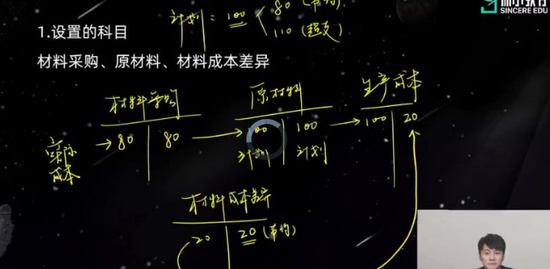 计划：100 80（节约）
110（超支）
SINCERE EDU
1.设置的科目
材料采购、原材料、材料成本差异
材料采购 原材料 生产成本
实际成本 80 80 100 100 100 20
计划 计划
材料成本差异
20 20（节约）